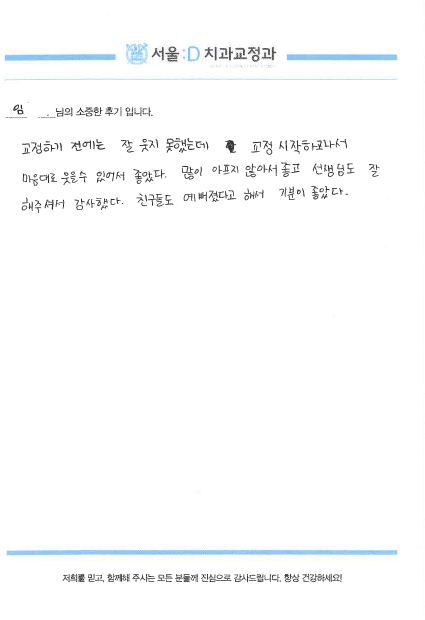 서울:D 치과교정과
임 님의 소중한 후기 입니다.
교정하기 전에는 잘 웃지 못했는데 교정 시작하고나서
마음대로 웃을수 있어서 좋았다. 많이 아프지 않아서 좋고 선생님도 잘
해주셔서 감사했다. 친구들도 예뻐졌다고 해서 기분이 좋았다.
저희를 믿고, 함께해 주시는 모든 분들께 진심으로 감사드립니다. 항상 건강하세요!